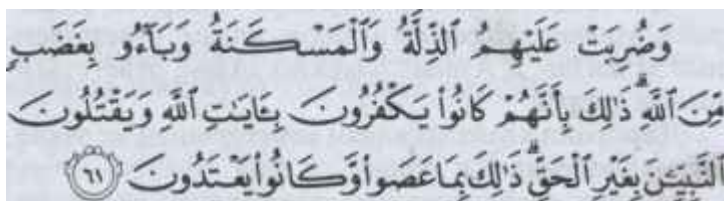 وَضُرِبَتْ عَلَيْهِمُ ٱلذِّلَّةُ وَٱلْمَسْكَنَةُ وَبَآءُو بِغَضَبٍ
مِّنَ ٱللَّهِ ۗ ذَٰلِكَ بِأَنَّهُمْ كَانُوا۟ يَكْفُرُونَ بِـَٔايَـٰتِ ٱللَّهِ وَيَقْتُلُونَ
ٱلنَّبِيِّـۧنَ بِغَيْرِ ٱلْحَقِّ ۗ ذَٰلِكَ بِمَا عَصَوا۟ وَّكَانُوا۟ يَعْتَدُونَ ٦١